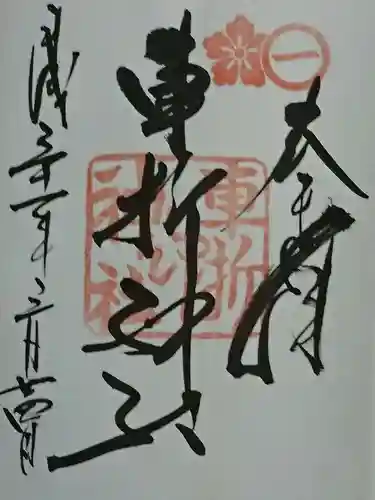 奉拝
車折神社
平成三十一年三月廿四日
一
車折神社